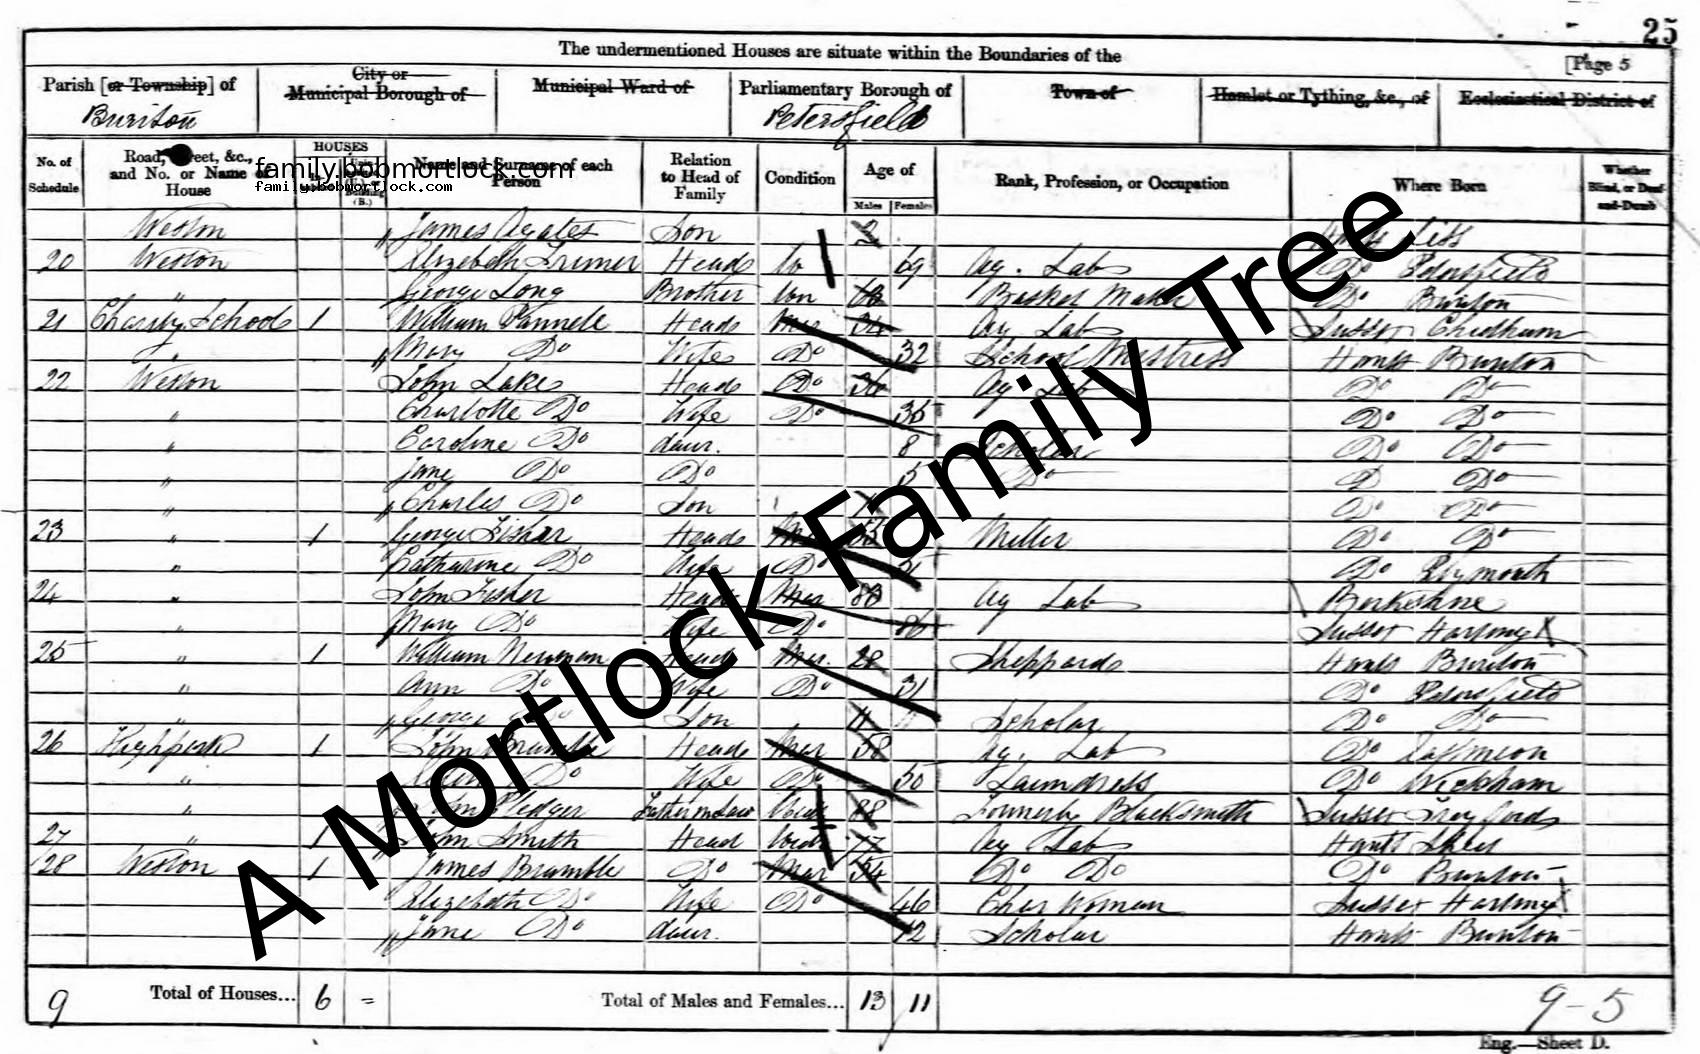 25
The undermentioned Houses are situate within the Boundaries of the
[Page 5
Parish [or Township] of City or Municipal Borough of Municipal Ward of Parliamentary Borough of Town of Hamlet or Tything, &c., of Ecclesiastical District of
Buriton Petersfield
No. of Schedule Road, Street, &c., and No. or Name of House HOUSES Name and Surname of each Person Relation to Head of Family Condition Age of Males Females Rank, Profession, or Occupation Where Born Whether Blind, or Deaf-and-Dumb
family.bobmortlock.com
family.bobmortlock.com
Weston James Agates Son 2 Hants Liss
20 Weston Elizabeth Trimer Head 69 Ag. Lab Do Petersfield
" George Long Brother Un Basket Maker Do Buriton
21 Charity School 1 William Pannell Head Mar 34 Ag Lab Sussex Chidham
" Mary Do Wife Do 32 School Mistress Hants Buriton
22 Weston John Lake Head Do 36 Ag Lab Do Do
" Charlotte Do Wife Do 35 Do Do
" Caroline Do daur. 8 Scholar Do Do
" Jane Do Do 5 Do Do Do
" Charles Do Son Do Do
23 " 1 George Fisher Head Mar Miller Do Do
" Catharine Do Wife Do Do Plymouth
24 " John Fisher Head Mar 80 Ag Lab Berkshire
" Mary Do Wife Do 86 Sussex Harting
25 " 1 William Newman Head Mar. 28 Sheppard Hants Buriton
" Ann Do Wife Do 31 Do Petersfield
" George Do Son 4 Scholar Do Do
26 Highpark 1 John Bramble Head Mar 58 Ag. Lab Do
" Do Wife Do 50 Laundress Do Wickham
" Pledger Father in Law Wid 88 Formerly Blacksmith Sussex Treyford
27 " 1 John Smith Head Wid 77 Ag Lab Hants
28 Weston 1 James Bramble Do Mar 54 Do Do Do Buriton
Elizabeth Do Wife Do 46 Char Woman Sussex Harting
Jane Do daur. 12 Scholar Hants Buriton
9 Total of Houses... 6 = Total of Males and Females... 13 11 9-5
Eng.—Sheet D.
A Mortlock Family Tree